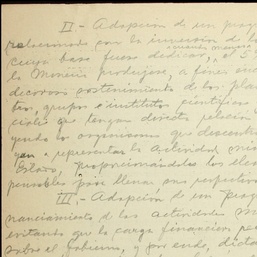 II - Adopción de un prog
relacionado con la inversión de los
cuya base fuese dedicar,
la Minería produjese, a fines
decoroso sostenimiento de los plan
tros, grupos e institutos científicos
ciales que tengan directa relación
yendo los organismos que descentra
yen o representan la actividad min
Estado, proporcionándoles los elem
pensables para llenar sus respectivo
III - Adopción de un prog
nanciamiento de las actividades m
evitando que la carga financiera pe
sobre el Gobierno, y por ende, dicta